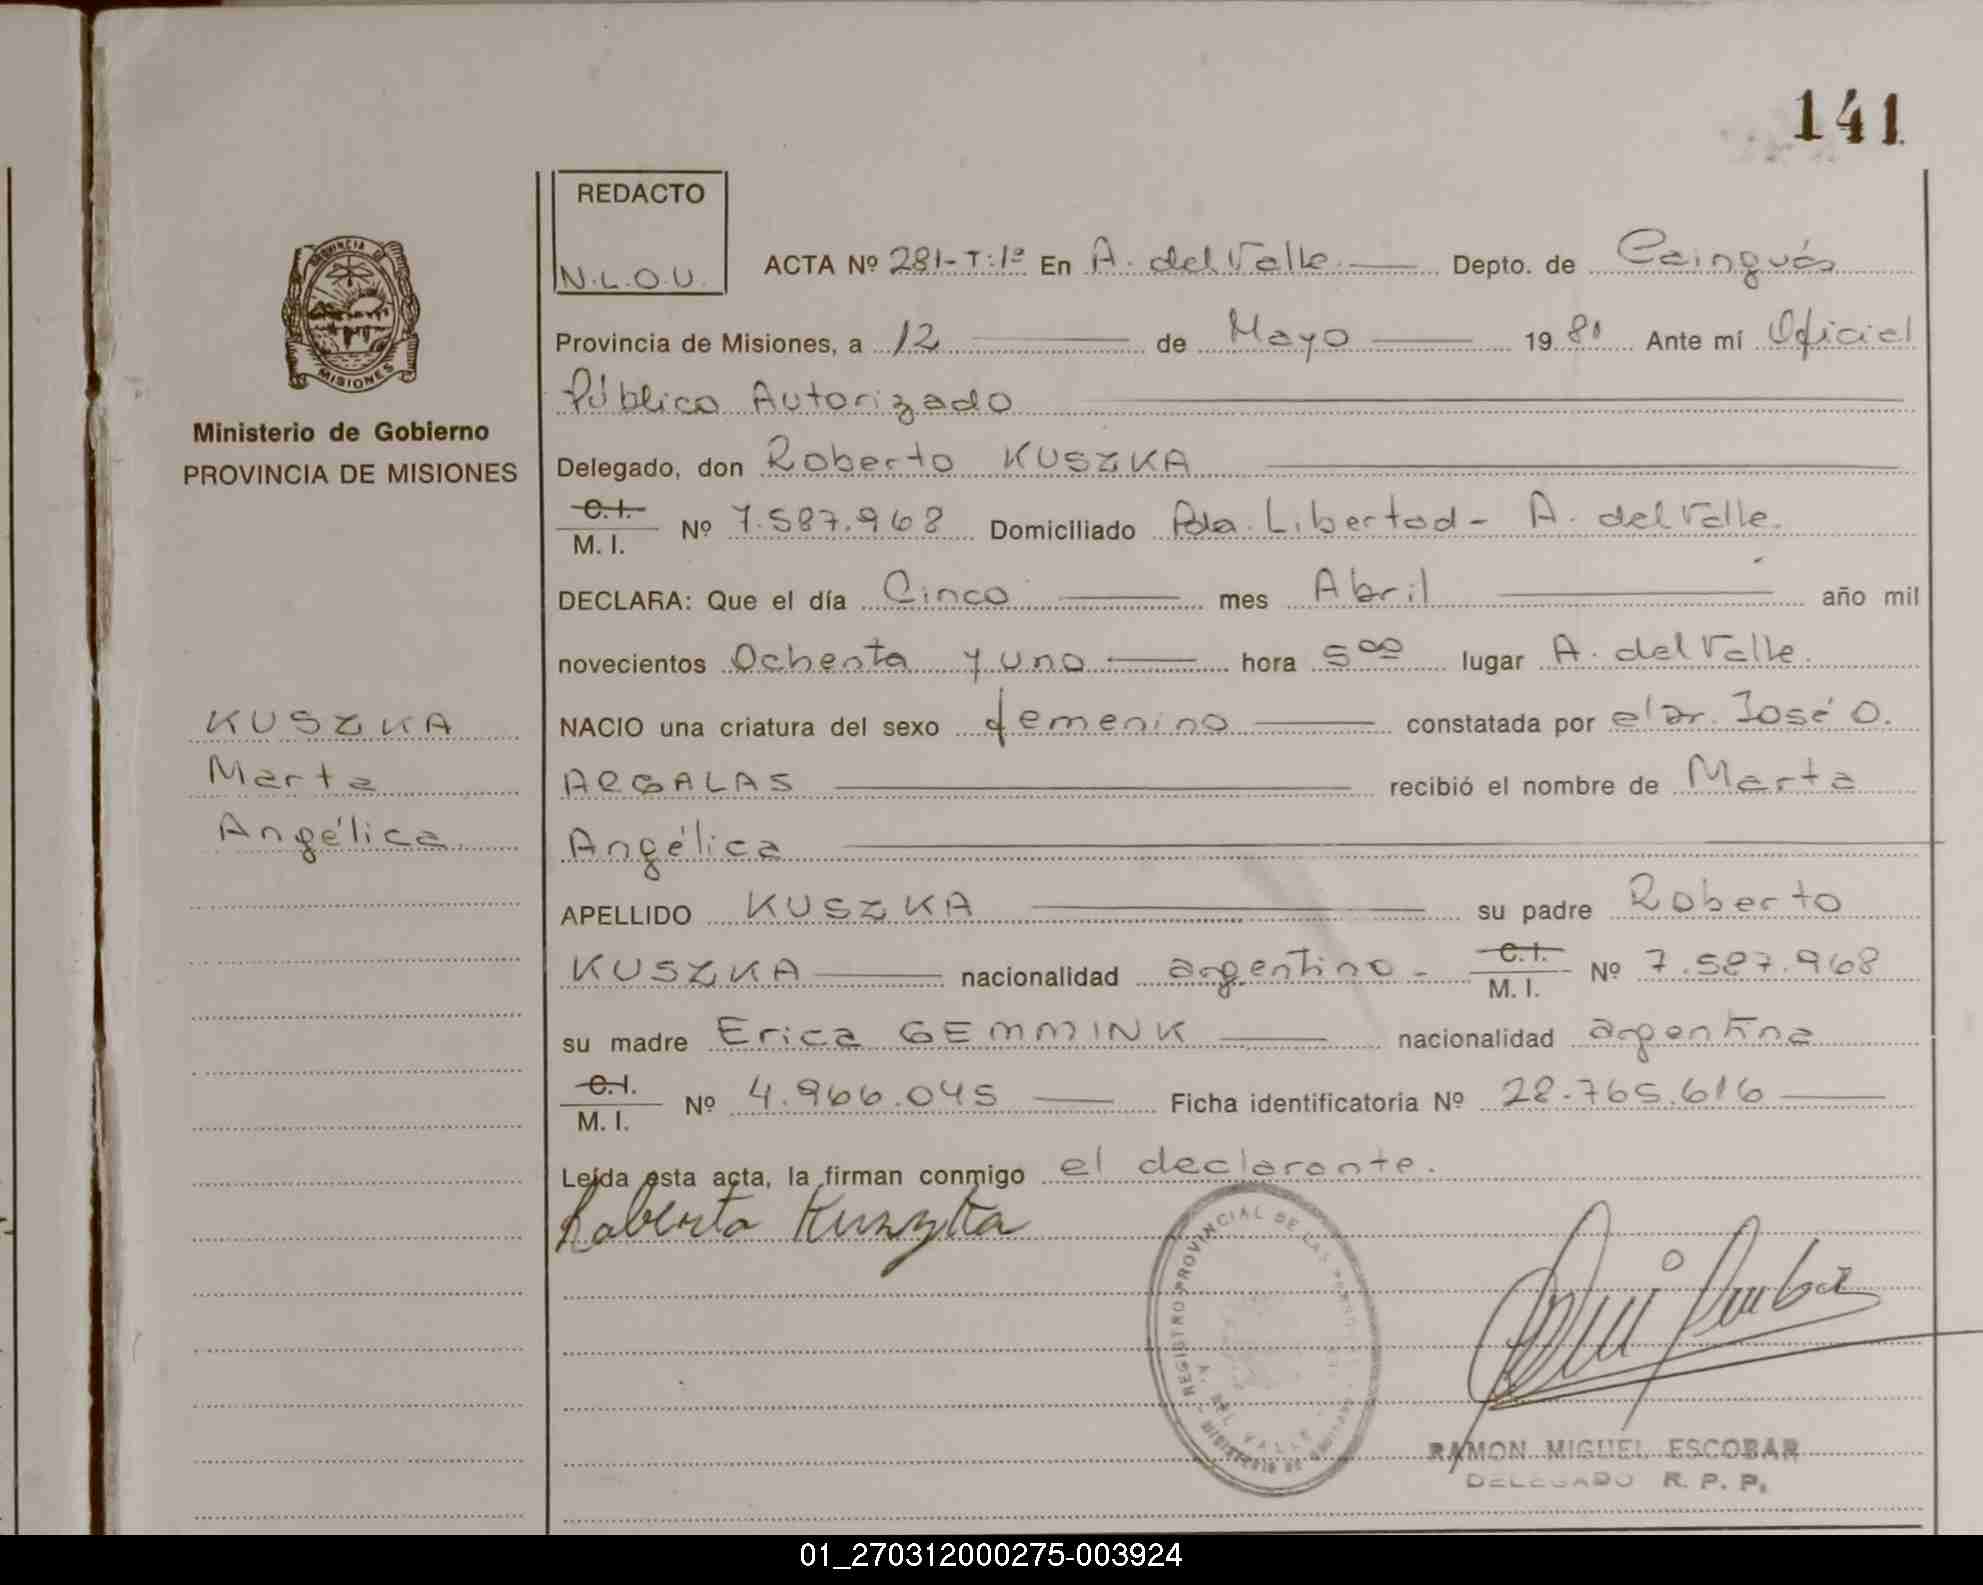 141
REDACTO
N.L.O.U.
ACTA Nº 281-T:1º En A. del Valle Depto. de Cainguás
Provincia de Misiones, a 12 de Mayo 1981 Ante mí Oficial
Público Autorizado
Delegado, don Roberto KUSZKA
C.I. M. I. Nº 7.587.968 Domiciliado Pda. Libertad - A. del Valle.
DECLARA: Que el día Cinco mes Abril año mil
novecientos Ochenta y uno hora 5 00 lugar A. del Valle.
NACIO una criatura del sexo femenino constatada por el Dr. José O.
ARGALAS recibió el nombre de Marta
Angélica
APELLIDO KUSZKA su padre Roberto
KUSZKA nacionalidad argentino - C.I. M. I. Nº 7.587.968
su madre Erica GEMMINK nacionalidad argentina
C.I. M. I. Nº 4.966.045 Ficha identificatoria Nº 28.765.616
Leída esta acta, la firman conmigo el declarante.
Roberto Kuszka
PROVINCIA DE
MISIONES
Ministerio de Gobierno
PROVINCIA DE MISIONES
KUSZKA
Marta
Angélica
REGISTRO PROVINCIAL DE LAS
A. DEL VALLE
MINISTERIO DE
RAMON MIGUEL ESCOBAR
DELEGADO R. P. P.
01_270312000275-003924